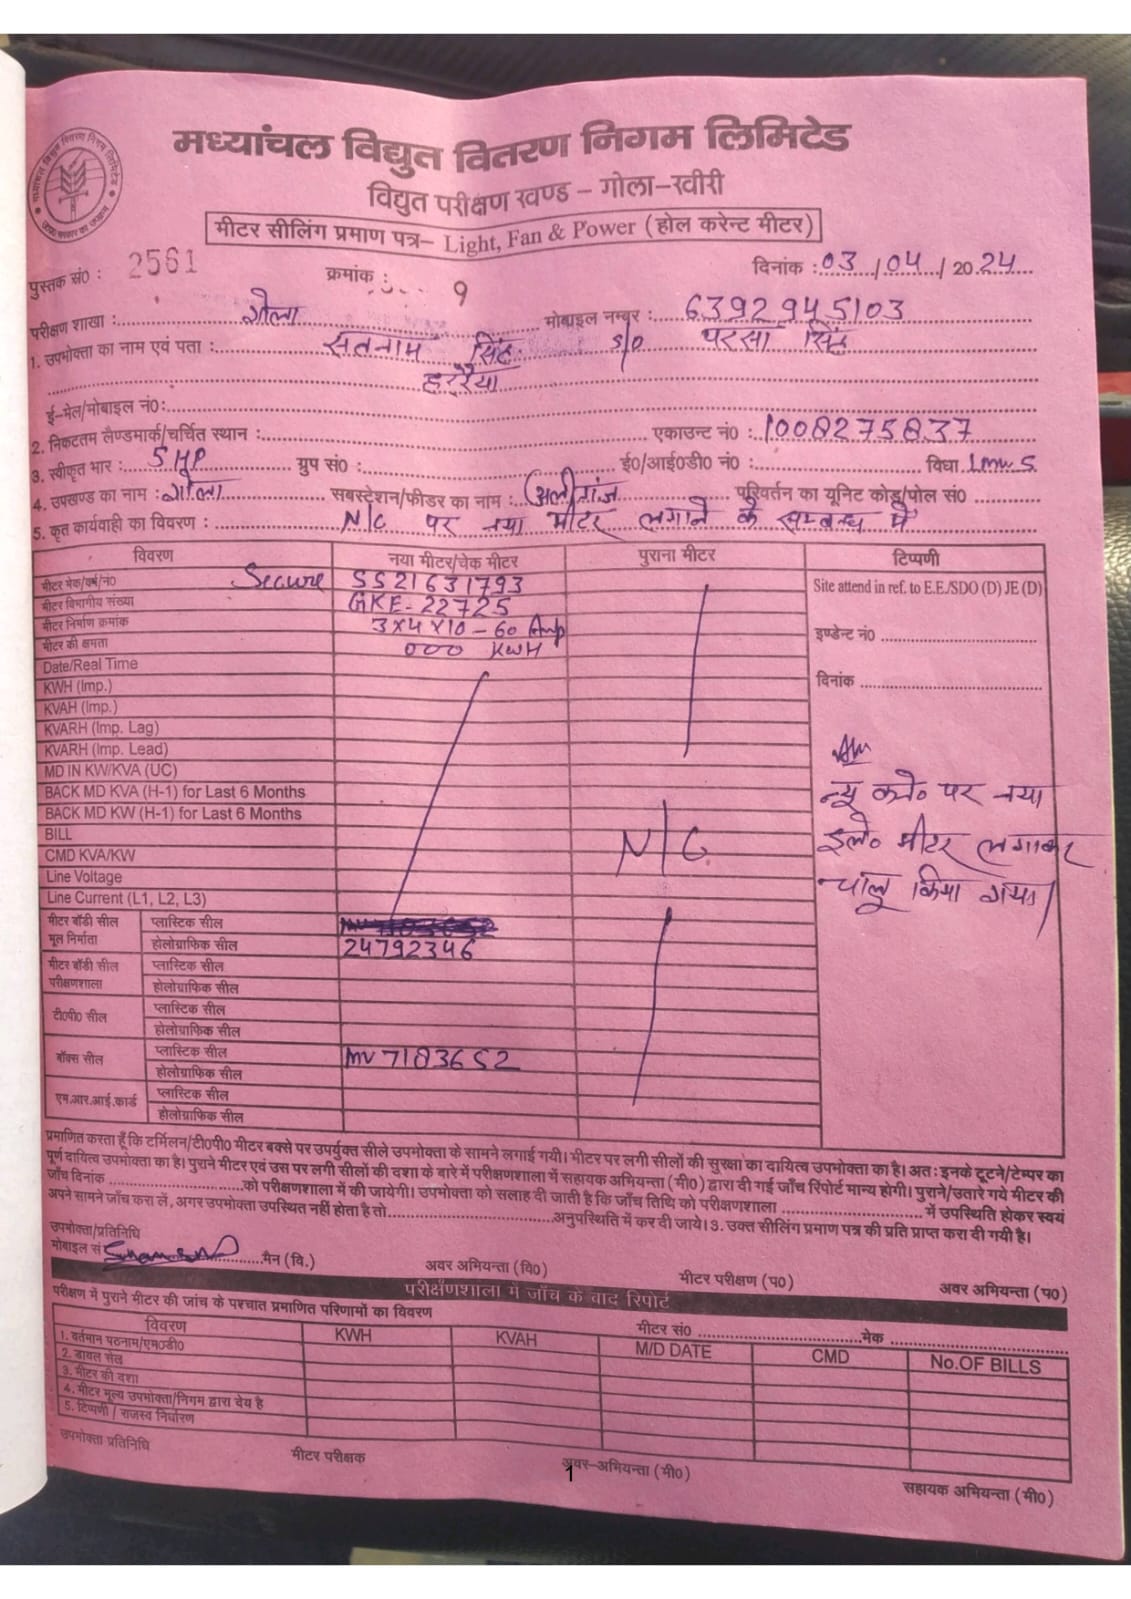 मध्यांचल विद्युत वितरण निगम लिमिटेड
विद्युत परीक्षण खण्ड – गोला-खीरी
मीटर सीलिंग प्रमाण पत्र– Light, Fan & Power (होल करेन्ट मीटर)
पुस्तक सं० : 2561 क्रमांक : 9 दिनांक : 03/04/2024
परीक्षण शाखा : गोला मोबाइल नम्बर : 6392945103
1. उपभोक्ता का नाम एवं पता : सतनाम सिंह S/O परसा सिंह
हररैया
ई-मेल/मोबाइल नं०:
2. निकटतम लैण्डमार्क/चर्चित स्थान : एकाउन्ट नं० : 1008275837
3. स्वीकृत भार : 5 HP ग्रुप सं० : ई०/आई०डी० नं० : विधा LMV 5
4. उपखण्ड का नाम : गोला सबस्टेशन/फीडर का नाम : अलीगंज परिवर्तन का यूनिट कोड/पोल सं०
5. कृत कार्यवाही का विवरण : N/C पर नया मीटर लगाने के सम्बन्ध में
विवरण नया मीटर/चेक मीटर पुराना मीटर टिप्पणी
मीटर मेक/वर्ष/नं० Secure SS21631793 Site attend in ref. to E.E./SDO (D) JE (D)
मीटर विभागीय संख्या GKE-22725
मीटर निर्माण क्रमांक 3x4x10-60 Amp इण्डेन्ट नं०
मीटर की क्षमता 000 KWH
Date/Real Time
KWH (Imp.) दिनांक
KVAH (Imp.)
KVARH (Imp. Lag)
KVARH (Imp. Lead)
MD IN KW/KVA (UC)
BACK MD KVA (H-1) for Last 6 Months न्यू कने० पर नया
BACK MD KW (H-1) for Last 6 Months
BILL N/C इले० मीटर लगाकर
CMD KVA/KW
Line Voltage चालू किया गया
Line Current (L1, L2, L3)
मीटर बॉडी सील मूल निर्माता प्लास्टिक सील
होलोग्राफिक सील 24792346
मीटर बॉडी सील परीक्षणशाला प्लास्टिक सील
होलोग्राफिक सील
टी०पी० सील प्लास्टिक सील
होलोग्राफिक सील
बॉक्स सील प्लास्टिक सील MV 7183652
होलोग्राफिक सील
एम.आर.आई.कार्ड प्लास्टिक सील
होलोग्राफिक सील
प्रमाणित करता हूँ कि टर्मिलन/टी०पी० मीटर बक्से पर उपर्युक्त सीले उपभोक्ता के सामने लगाई गयी। मीटर पर लगी सीलों की सुरक्षा का दायित्व उपभोक्ता का है। अतः इनके टूटने/टेम्पर का
पूर्ण दायित्व उपभोक्ता का है। पुराने मीटर एवं उस पर लगी सीलों की दशा के बारे में परीक्षणशाला में सहायक अभियन्ता (मी०) द्वारा दी गई जाँच रिपोर्ट मान्य होगी। पुराने/उतारे गये मीटर की
जाँच दिनांक को परीक्षणशाला में की जायेगी। उपभोक्ता को सलाह दी जाती है कि जाँच तिथि को परीक्षणशाला में उपस्थिति होकर स्वयं
अपने सामने जाँच करा लें, अगर उपभोक्ता उपस्थित नहीं होता है तो अनुपस्थिति में कर दी जाये। 3. उक्त सीलिंग प्रमाण पत्र की प्रति प्राप्त करा दी गयी है।
उपभोक्ता/प्रतिनिधि
मोबाइल सं मैन (वि.) अवर अभियन्ता (वि०) मीटर परीक्षण (प०) अवर अभियन्ता (प०)
परीक्षणशाला में जाँच के बाद रिपोर्ट
परीक्षण में पुराने मीटर की जांच के पश्चात प्रमाणित परिणामों का विवरण मीटर सं० मेक
विवरण KWH KVAH M/D DATE CMD No.OF BILLS
1. वर्तमान पठनाम/एम०डी०
2. डायल सेल
3. मीटर की दशा
4. मीटर मूल्य उपभोक्ता/निगम द्वारा देय है
5. टिप्पणी / राजस्व निर्धारण
उपभोक्ता प्रतिनिधि मीटर परीक्षक अवर-अभियन्ता (मी०) सहायक अभियन्ता (मी०)
1